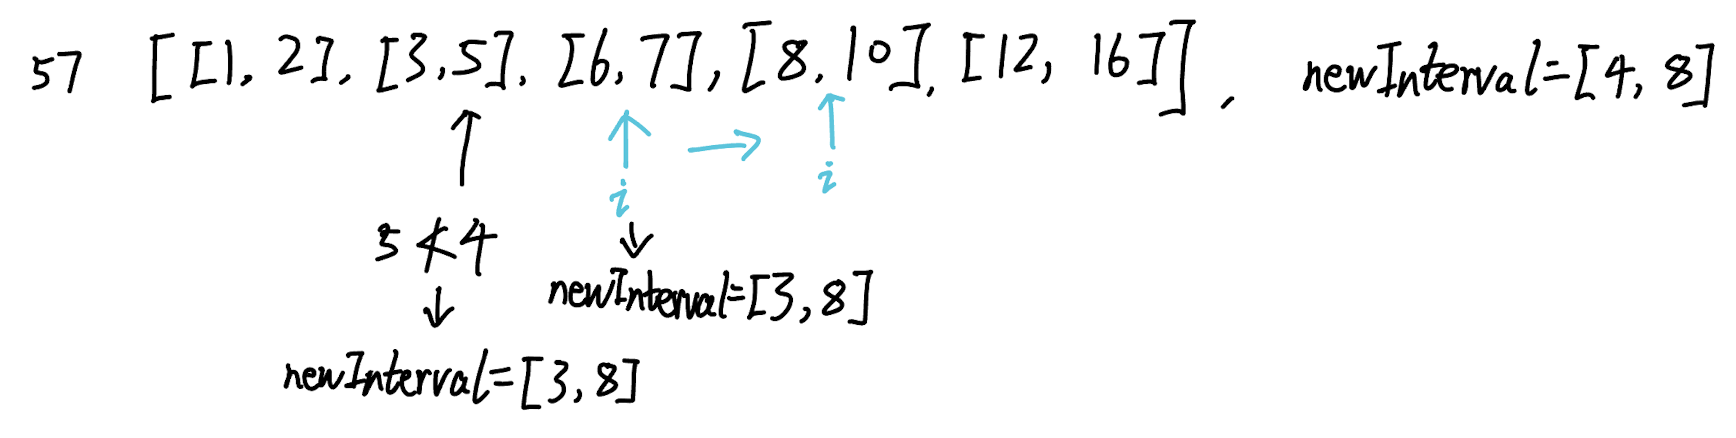 57 [[1, 2], [3,5], [6,7], [8,10], [12, 16]], newInterval=[4, 8]
i
i
5 ≮ 4
newInterval=[3,8]
newInterval=[3,8]